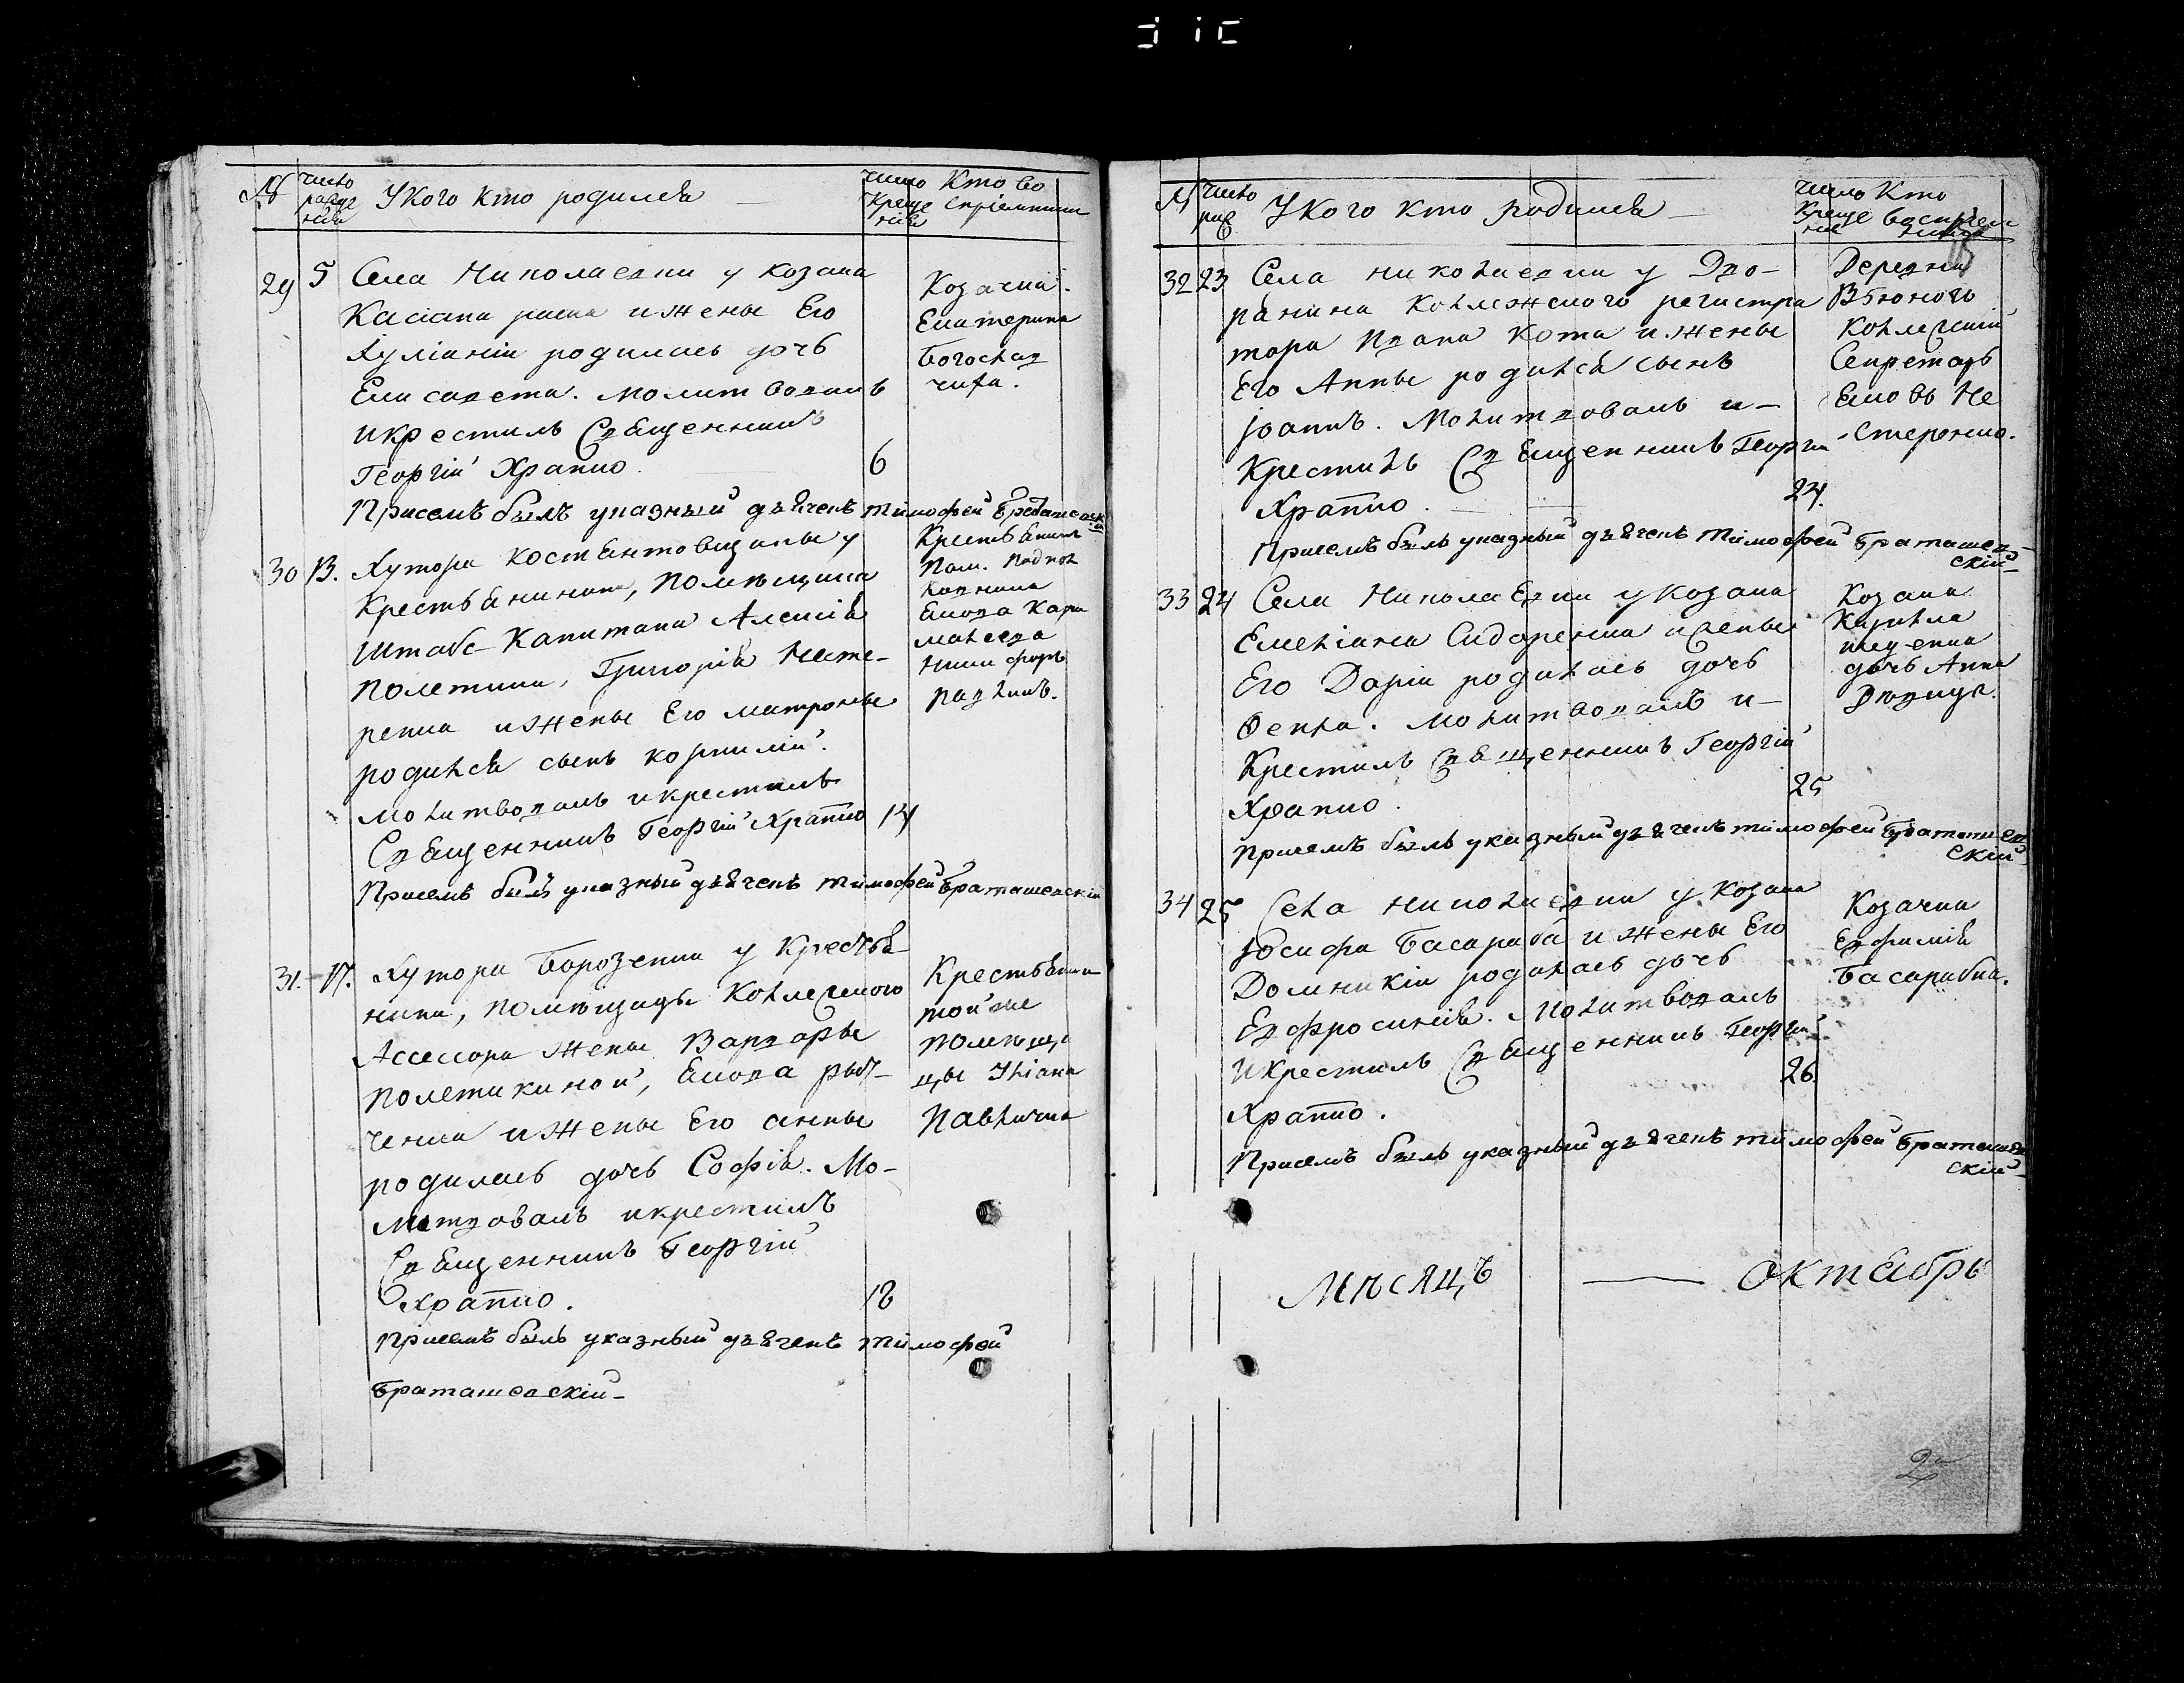 № число рожде нія Укого кто родился число Креще нія Кто во спріемники
29 5 Села Николаевки у козака
Касіана рака ижены Его
Іуліаніи родилась дочь
Елисавета. молитвовалъ
икрестилъ Священникъ
Георгій Храпко. 6
Козачка.
Екатерина
Богослав
чиха.
Присемъ былъ указный дьячекъ тимофей Браташевскій
30 13. Хутора костянтовщины у
Крестьянина, помѣщика
Штабс-Капитана Алексія
полетики, Григорія
ренка ижены Его матроны
родился сынъ корнилій.
молитвовалъ икрестилъ
Священникъ Георгій Храпко 14
Крестьянинъ
пом.
Якова Кара
Ники форъ
Присемъ былъ указный дьячекъ тимофей Браташевскій
31. 17. Хутора Борозенки у Крестья-
нина, помѣщицы Коллежского
Ассесора жены Варвары
полетикиной, Якова рыб-
ченка ижены Его анны
родилась дочь Софія. Мо-
литвовалъ икрестилъ
Священникъ Георгій
Храпко. 18
Крестьянин
той же
помѣщи
цы Іліана
Павлична
Присемъ былъ указный дьячекъ тимофей
Браташевскій
№ число рож Укого кто родился число Креще ніе Кто воспріем никъ
32 23 Села николаевки у Дво-
ранина коллежского регистра
тора Ивана кота ижены
Его Анны родился сынъ
іоаннъ. Молитвовалъ и-
Крестилъ Священникъ Георгій
Храпко. 24.
Деревни
Вьюного
коллежскій
Секретарь
Яковъ Не
-стеренко.
Присемъ былъ указный дьячекъ тимофей Браташев-
скій
33 24 Села Николаевки укозака
Емеліана Сидоренка ижены
Его Даріи родилась дочь
Фекла. молитвовалъ и-
Крестилъ Священникъ Георгій
Храпко. 25
Козака
Кирилла
дочь Анна
Вдовица.
Присемъ былъ указный дьячекъ тимофей Браташев
скій
34 25 Села николаевки у козака
іосифа Басараба ижены Его
Домникіи родилась дочь
Евфросинія. Молитвовалъ
икрестилъ Священникъ Георгій
Храпко. 26.
Козачка
Евфимія
Басарабка.
Присемъ былъ указный дьячекъ тимофей Браташев
скій
Мѣсяцъ — октябрь
2